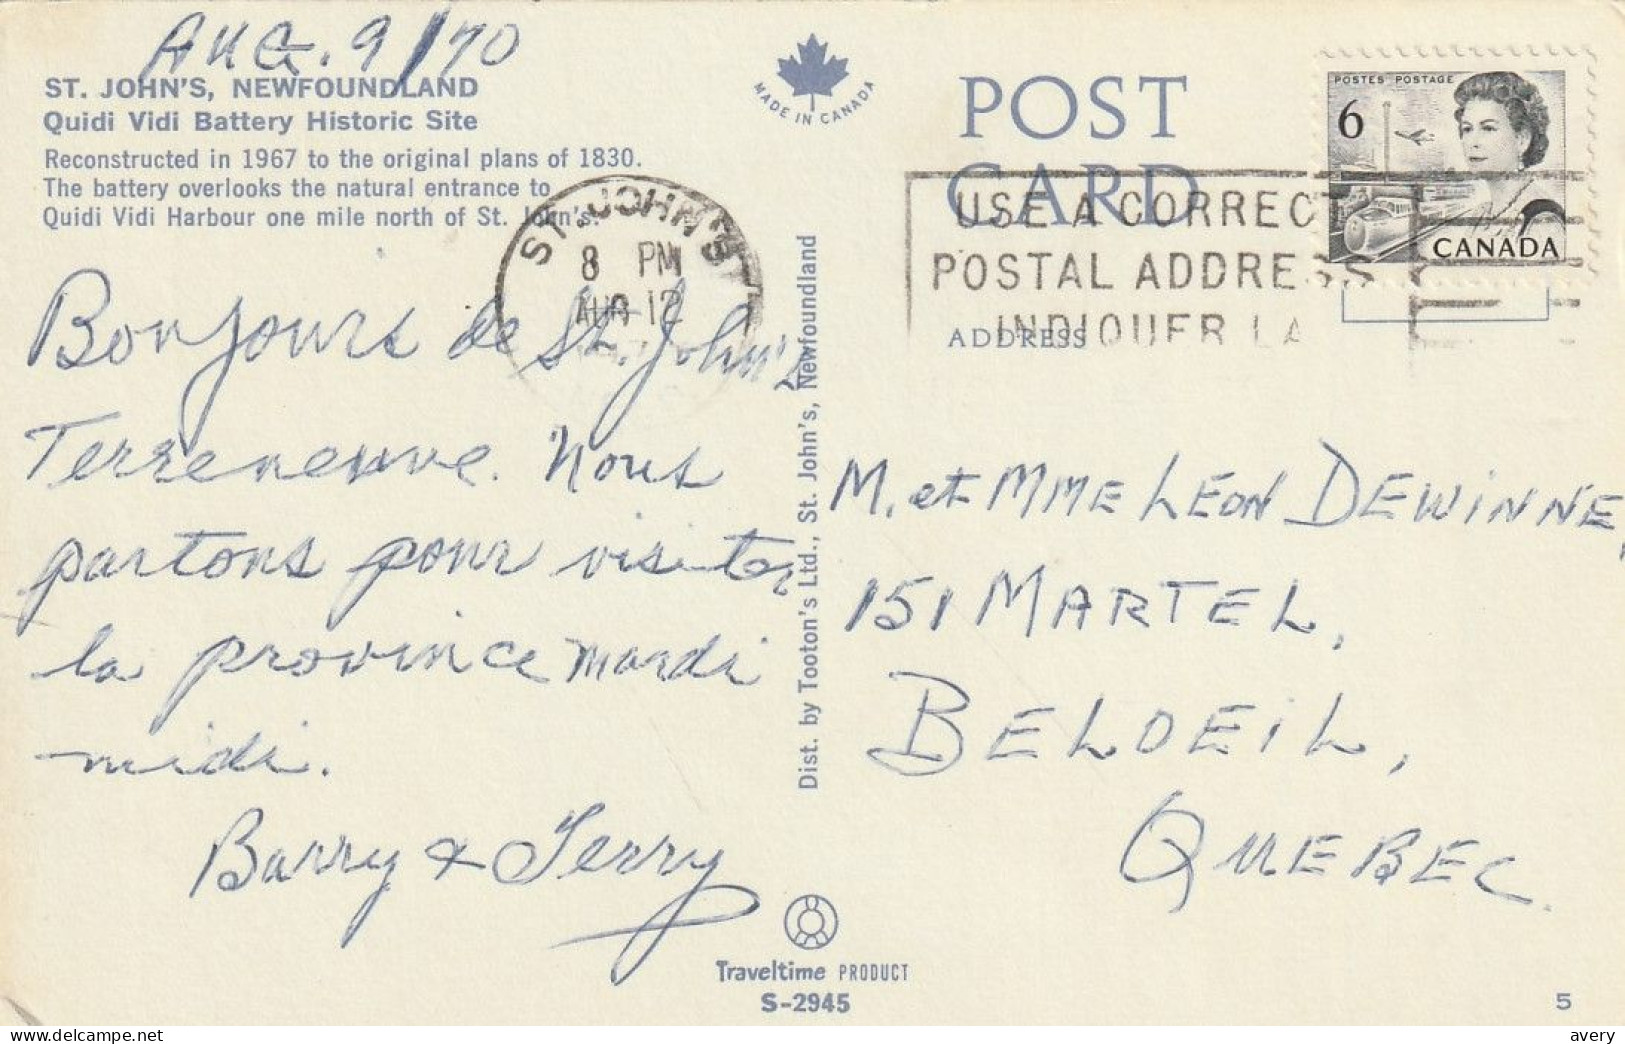 AUG. 9/70
ST. JOHN'S, NEWFOUNDLAND
Quidi Vidi Battery Historic Site
Reconstructed in 1967 to the original plans of 1830.
The battery overlooks the natural entrance to
Quidi Vidi Harbour one mile north of St. John's.
Bonjours de St. John's
Terreneuve. Nous
partons pour visiter
la province mardi
midi.
Barry & Terry
MADE IN CANADA
POST
CARD
ST. JOHN'S
8 PM
AUG 12
USE A CORRECT
POSTAL ADDRESS
INDIQUER LA
POSTES POSTAGE
6
CANADA
ADDRESS
M. et MME LEON DEWINNE,
151 MARTEL,
BELOEIL,
QUEBEC.
Dist. by Tooton's Ltd., St. John's, Newfoundland
Traveltime PRODUCT
S-2945
5
avery